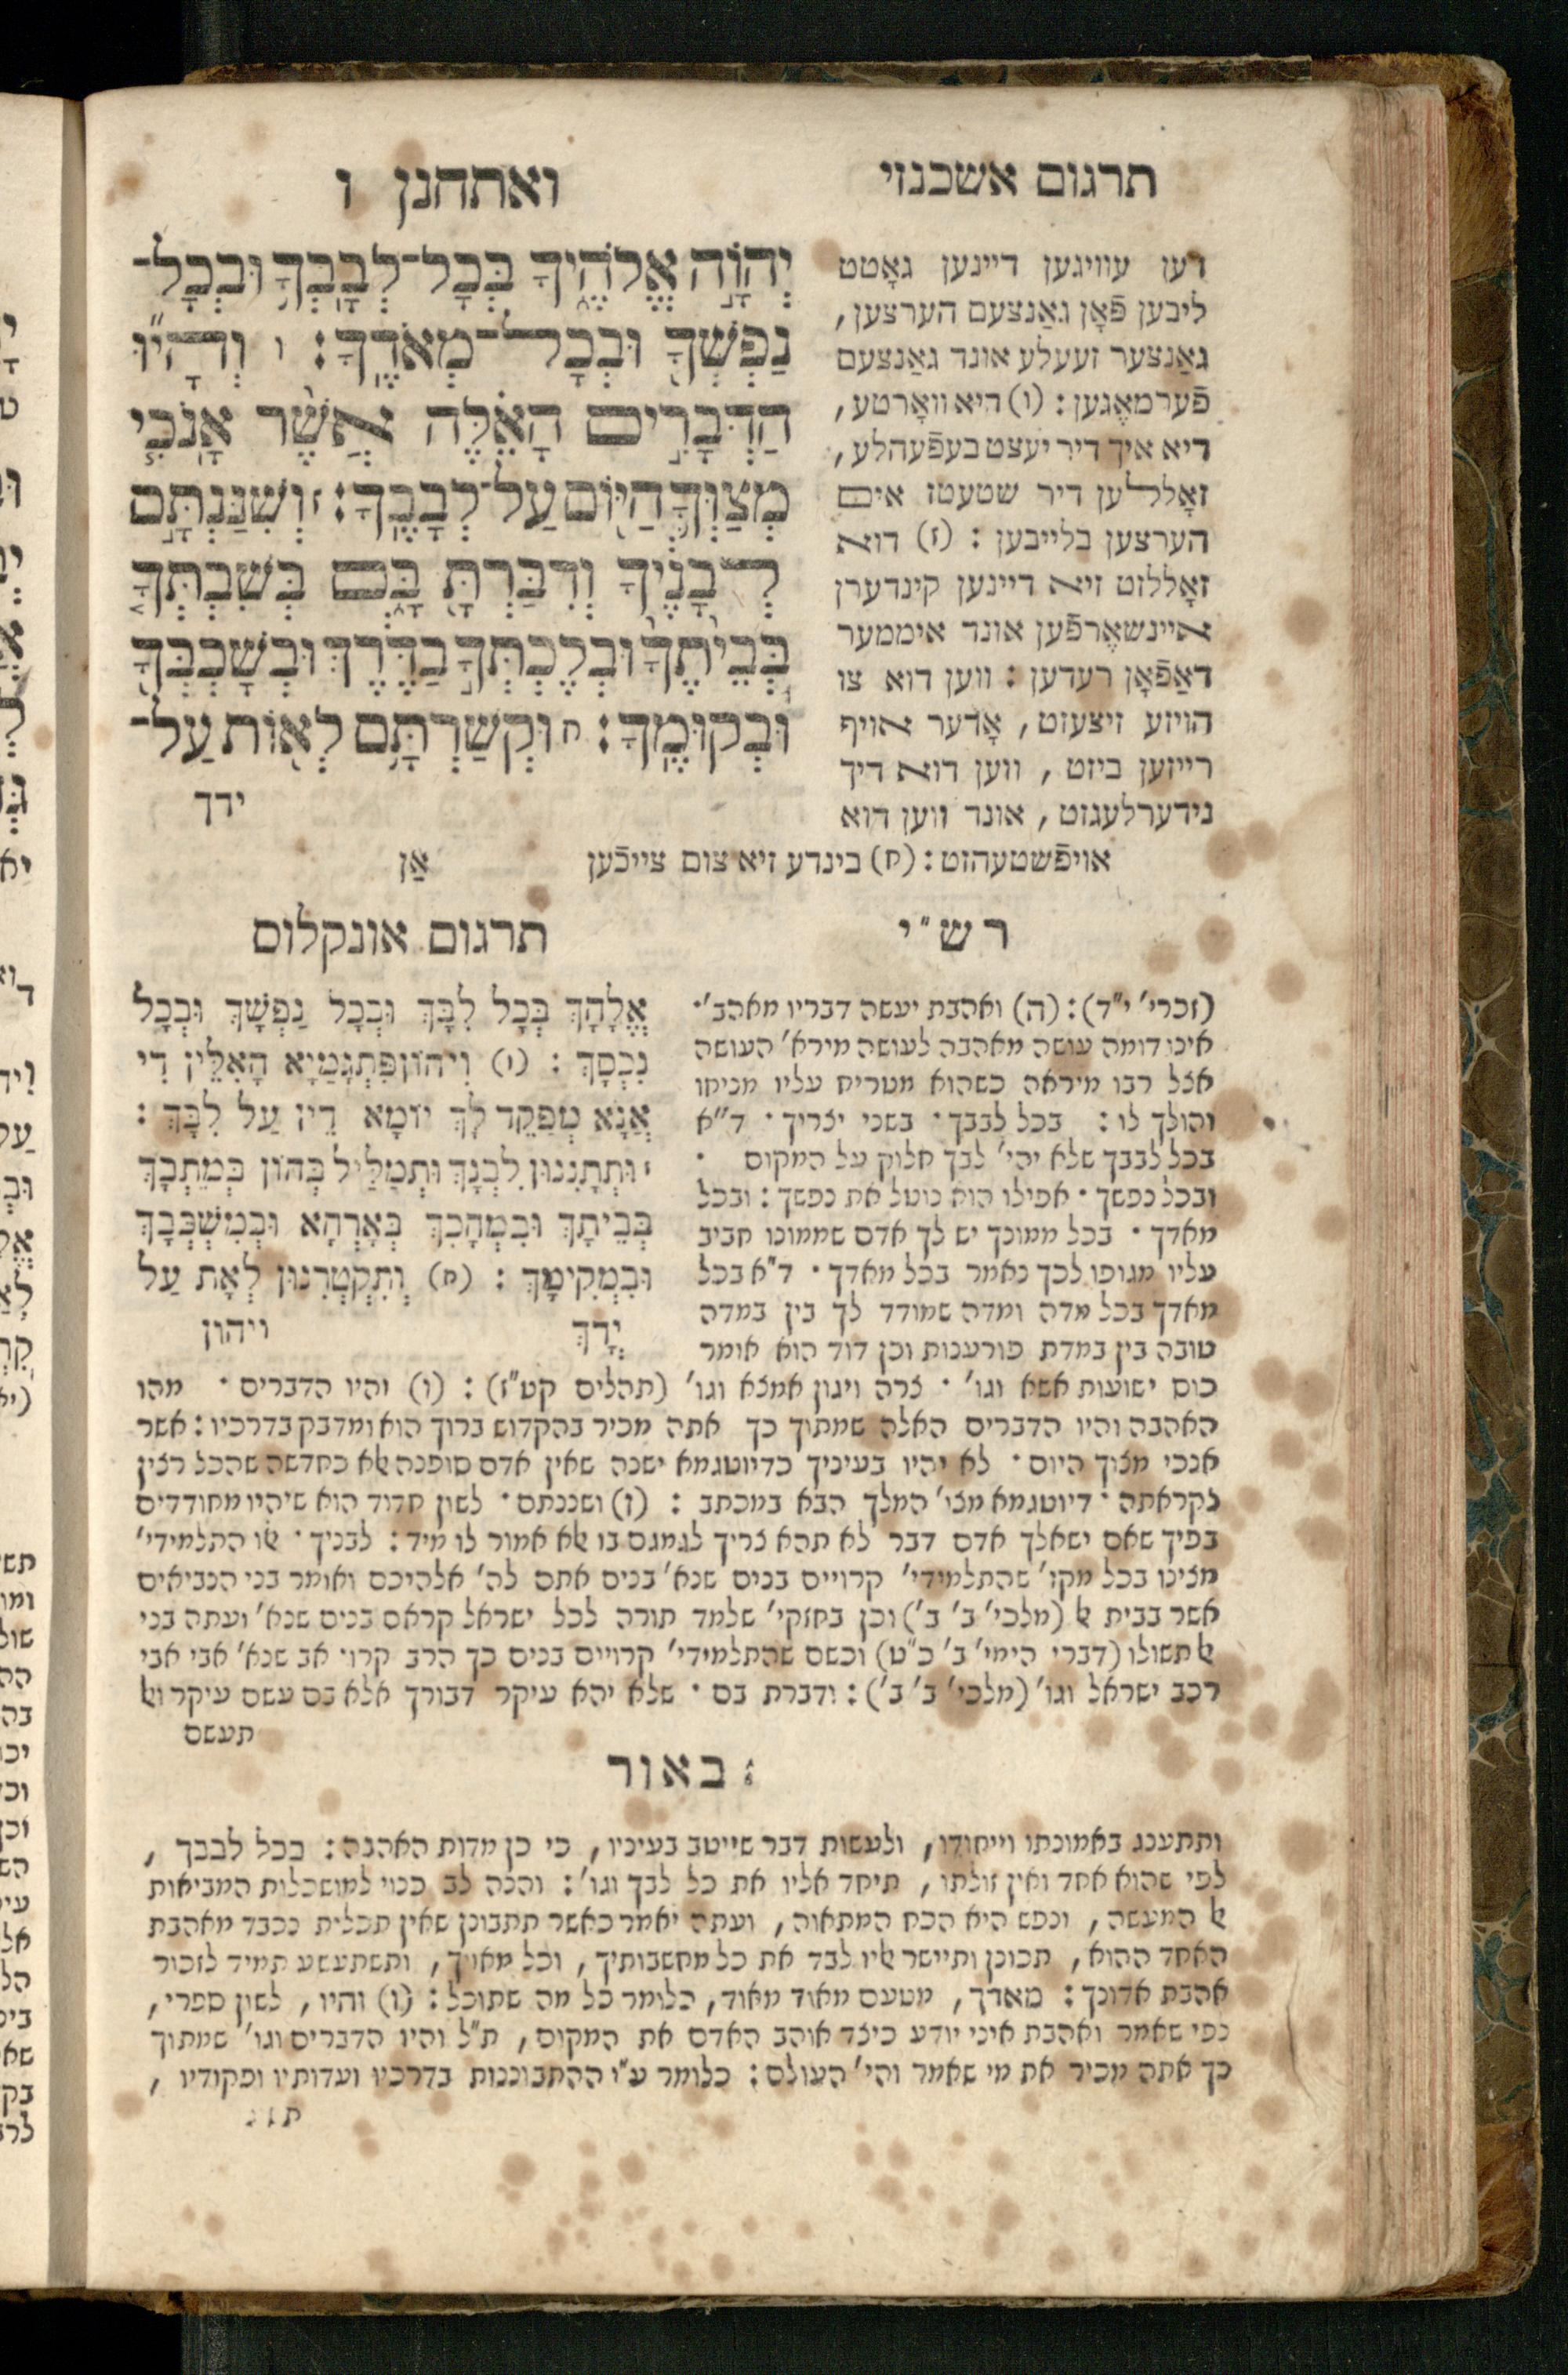 תרגום אשכנזי
ואתחנן ו
יְהוָֹ֣ה אֱלֹהֶ֑יךָ בְּכָל־לְבָבְךָ֥ וּבְכָל־
נַפְשְׁךָ֖ וּבְכָל־מְאֹדֶֽךָ׃ ו וְהָי֞וּ
הַדְּבָרִ֣ים הָאֵ֗לֶּה אֲשֶׁ֨ר אָֽנֹכִ֧י
מְצַוְּךָ֛ הַיּ֖וֹם עַל־לְבָבֶֽךָ׃ ז וְשִׁנַּנְתָּ֣ם
לְבָנֶ֔יךָ וְדִבַּרְתָּ֖ בָּ֑ם בְּשִׁבְתְּךָ֤
בְּבֵיתֶ֙ךָ֙ וּבְלֶכְתְּךָ֣ בַדֶּ֔רֶךְ וּֽבְשָׁכְבְּךָ֖
וּבְקוּמֶֽךָ׃ ח וּקְשַׁרְתָּ֥ם לְא֖וֹת עַל־
ידך
דען עוויגען דיינען גאָטט
ליבען פֿאָן גאַנצעם הערצען,
גאַנצער זעעלע אונד גאַנצעם
פֿערמאֶגען: (ו) דיא וואָרטע,
דיא איך דיר יעצט בעפֿעהלע,
זאָללען דיר שטעטז אים
הערצען בלייבען: (ז) דוא
זאָללזט זיא דיינען קינדערן
איינשאֶרפֿען אונד איממער
דאַפֿאָן רעדען: ווען דוא צו
הויזע זיצעזט, אָדער אויף
רייזען ביזט, ווען דוא דיך
נידערלעגזט, אונד ווען דוא
אויפֿשטעהזט: (ח) בינדע זיא צום צייכֿען אַן
רש"י
(זכרי' י"ד): (ה) ואהבת יעשה דבריו מאהב'·
אינו דומה עושה מאהבה לעושה מירא' העושה
אצל רבו מיראה כשהוא מטריח עליו מניחו
והולך לו: בכל לבבך· בשני יצריך· ד"א
בכל לבבך שלא יהי' לבך חלוק על המקום·
ובכל נפשך· אפילו הוא נוטל את נפשך: ובכל
מאדך· בכל ממונך יש לך אדם שממונו חביב
עליו מגופו לכך נאמר בכל מאדך· ד"א בכל
מאדך בכל מדה ומדה שמודד לך בין במדה
טובה בין במדת פורענות וכן דוד הוא אומר
כוס ישועות אשא וגו'· צרה ויגון אמצא וגו' (תהלים קט"ז): (ו) והיו הדברים· מהו
האהבה והיו הדברים האלה שמתוך כך אתה מכיר בהקדוש ברוך הוא ומדבק בדרכיו: אשר
אנכי מצוך היום· לא יהיו בעיניך כדיוטגמא ישנה שאין אדם סופנה אלא כחדשה שהכל רצין
לקראתה· דיוטגמא מצו' המלך הבא במכתב: (ז) ושננתם· לשון חדוד הוא שיהיו מחודדים
בפיך שאם ישאלך אדם דבר לא תהא צריך לגמגם בו אלא אמור לו מיד: לבניך· אלו התלמידי'
מצינו בכל מקו' שהתלמידי' קרויים בנים שנא' בנים אתם לה' אלהיכם ואומר בני הנביאים
אשר בבית אל (מלכי' ב' ב') וכן בחזקי' שלמד תורה לכל ישראל קראם בנים שנא' ועתה בני
אל תשולו (דברי הימי' ב' כ"ט) וכשם שהתלמידי' קרויים בנים כך הרב קרוי אב שנא' אבי אבי
רכב ישראל וגו' (מלכי' ב' ב'): ודברת בם· שלא יהא עיקר דבורך אלא בם עשם עיקר ואל
תעשם
תרגום אונקלוס
אֱלָהָךְ בְּכָל לִבָּךְ וּבְכָל נַפְשָׁךְ וּבְכָל
נִכְסָךְ: (ו) וִיהוֹן פִּתְגָמַיָא הָאִלֵין דִי
אֲנָא מְפַקֵד לָךְ יוֹמָא דֵין עַל לִבָּךְ:
ז וּתְתָנִנוּן לִבְנָךְ וּתְמַלֵיל בְּהוֹן בְּמִתְבָךְ
בְּבֵיתָךְ וּבִמְהָכָךְ בְּאָרְחָא וּבְמִשְׁכְּבָךְ
וּבִמְקִימָךְ: (ח) וְתִקְטְרִנוּן לְאָת עַל
יְדָךְ ויהון
באור
ותתענג באמונתו וייחודו, ולעשות דבר שייטב בעיניו, כי כן מדות האהבה: בכל לבבך,
לפי שהוא אחד ואין זולתו, תיחד אליו את כל לבך וגו': והנה לב כנוי למושכלות המביאות
אל המעשה, ונפש היא הכח המתאוה, ועתה יאמר כאשר תתבונן שאין תכלית נכבד מאהבת
האחד ההוא, תכונן ותיישר אליו לבד את כל מחשבותיך, וכל מאויך, ותשתעשע תמיד לזכור
אהבת אדונך: מאדך, מטעם מאוד מאוד, כלומר כל מה שתוכל: (ו) והיו, לשון ספרי,
לפי שאמר ואהבת איני יודע כיצד אוהב האדם את המקום, ת"ל והיו הדברים וגו' שמתוך
כך אתה מכיר את מי שאמר והי' העולם: כלומר ע"י ההתבוננות בדרכיו ועדותיו ופקודיו,